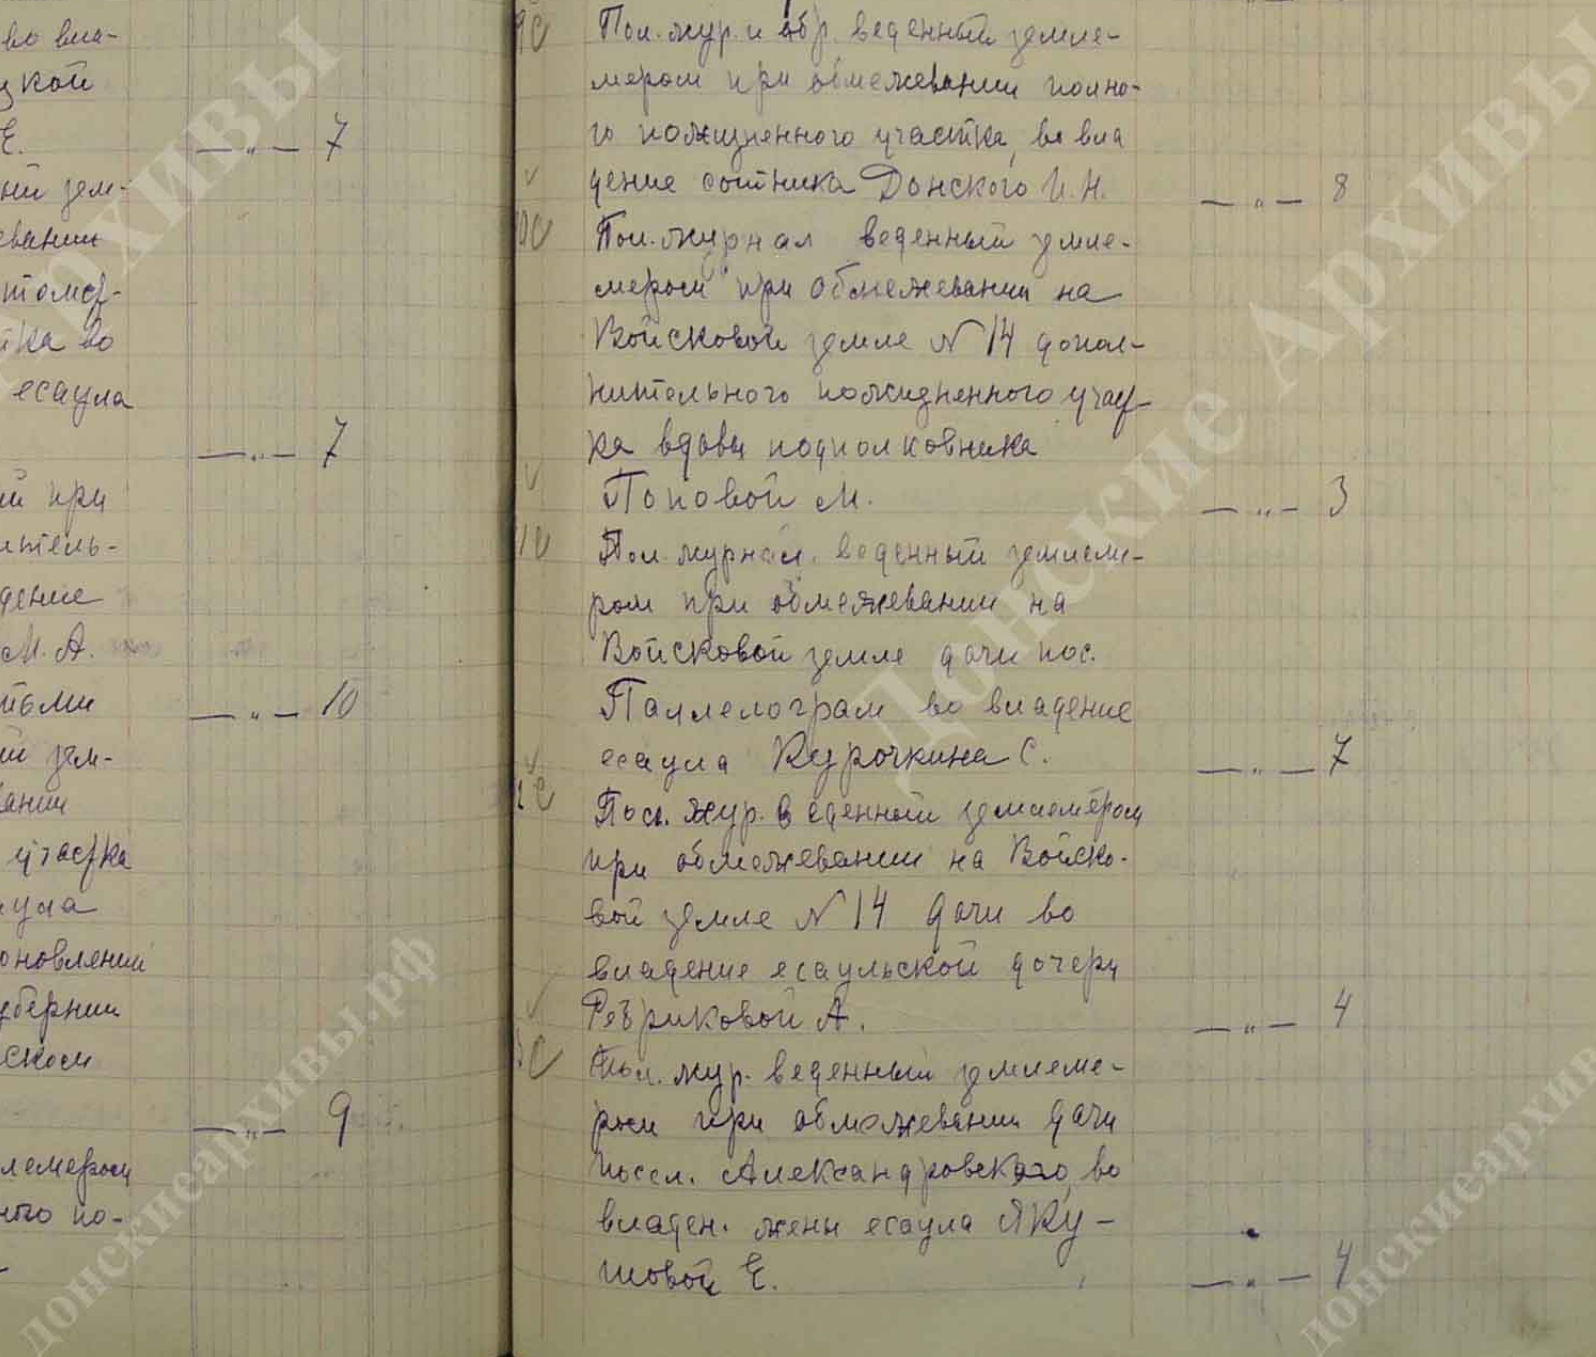 во вла-
цкой
Е.
—„— 7
ний зем-
евании
отка во
есаула
—„— 7
ий при
дение
М. А.
—„— 10
ий зем-
вании
участка
аула
ановлений
губернии
ском
—„— 9
лемером
ного по-
Пол. жур. и абр. веденный земле-
мером при обмежевании полно-
го пожизненного участка, во вла
дение сотника Донского И. Н. —„— 8
Пол. журнал веденный земле-
мером при обмежевании на
Войсковой земле N 14 допол-
нительного пожизненного участ-
ка вдовы подполковника
Поповой М. —„— 3
Пол. журнал. веденный землеме-
ром при обмежевании на
Войсковой земле дачи пос.
Паллелограм во владение
есаула Курочкина С. —„— 7
Пол. жур. веденный землемером
при обмежевании на Войско-
вой земле N 14 дачи во
владение есаульской дочери
Ребриковой А. —„— 4
Пол. жур. веденный землеме-
ром при обмежевании дачи
поссл. Александровского, во
владен. жены есаула Яку-
шовой Е. —„— 4
Донские Архивы
донскиеархивы.рф